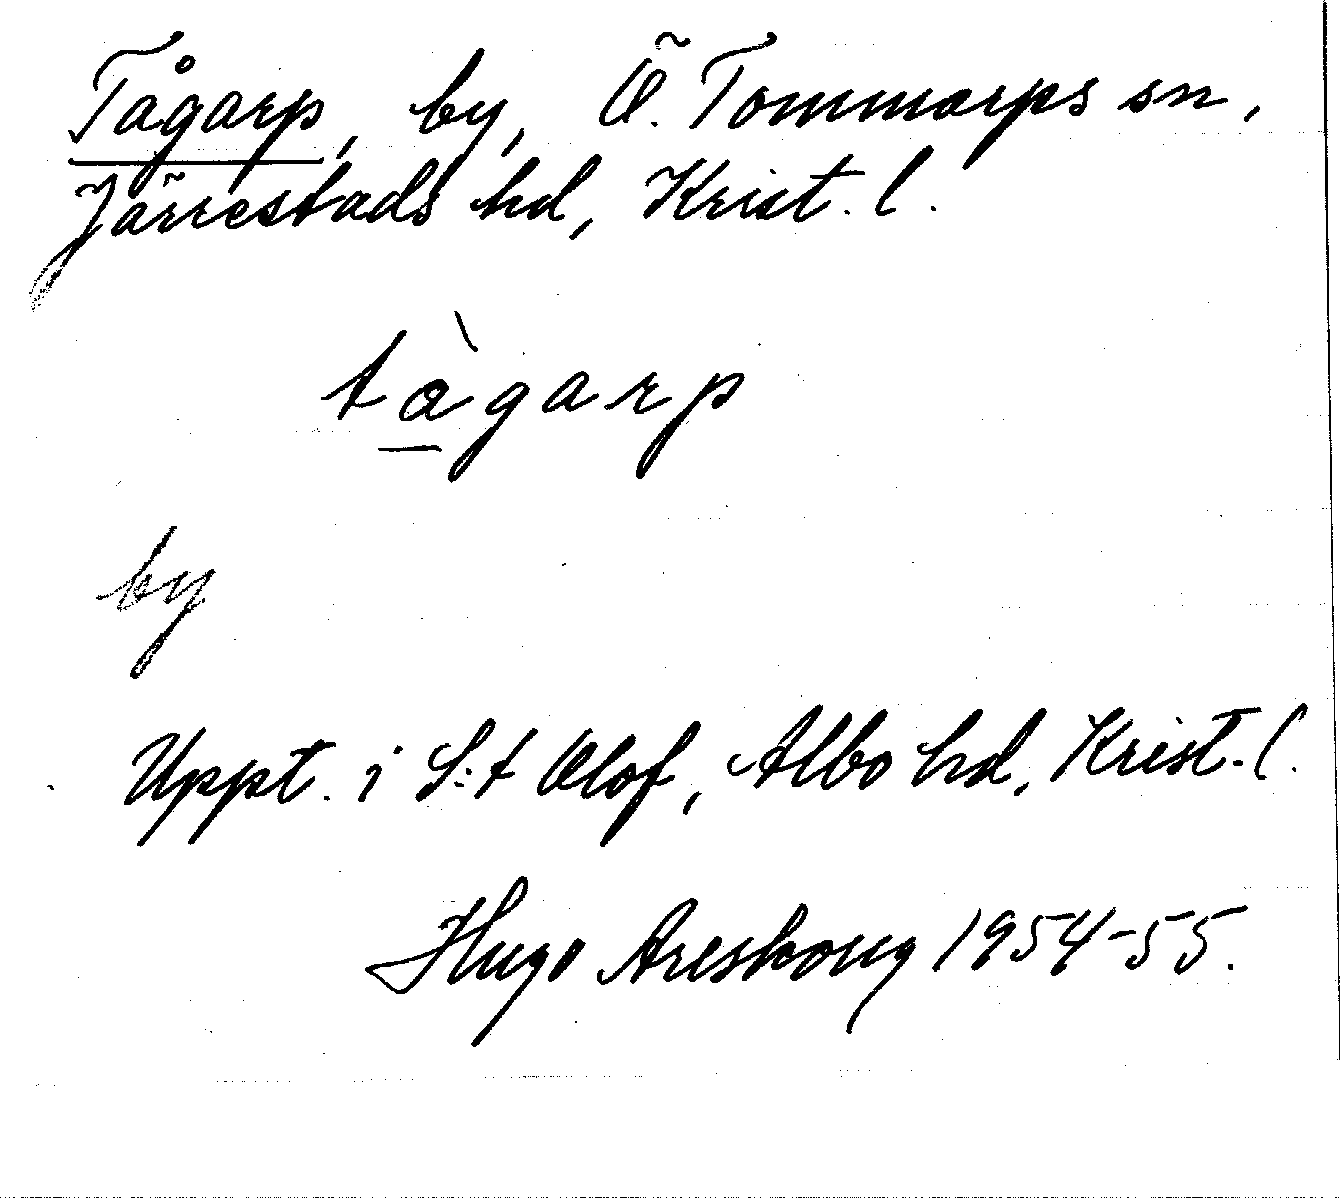 Tågarp, by, Ö. Tommarps sn,
Järrestads hd, Krist. l.
tàgarp
by
Uppt. i S:t Olof, Albo hd, Krist. l.
Hugo Areskoug 1954-55.